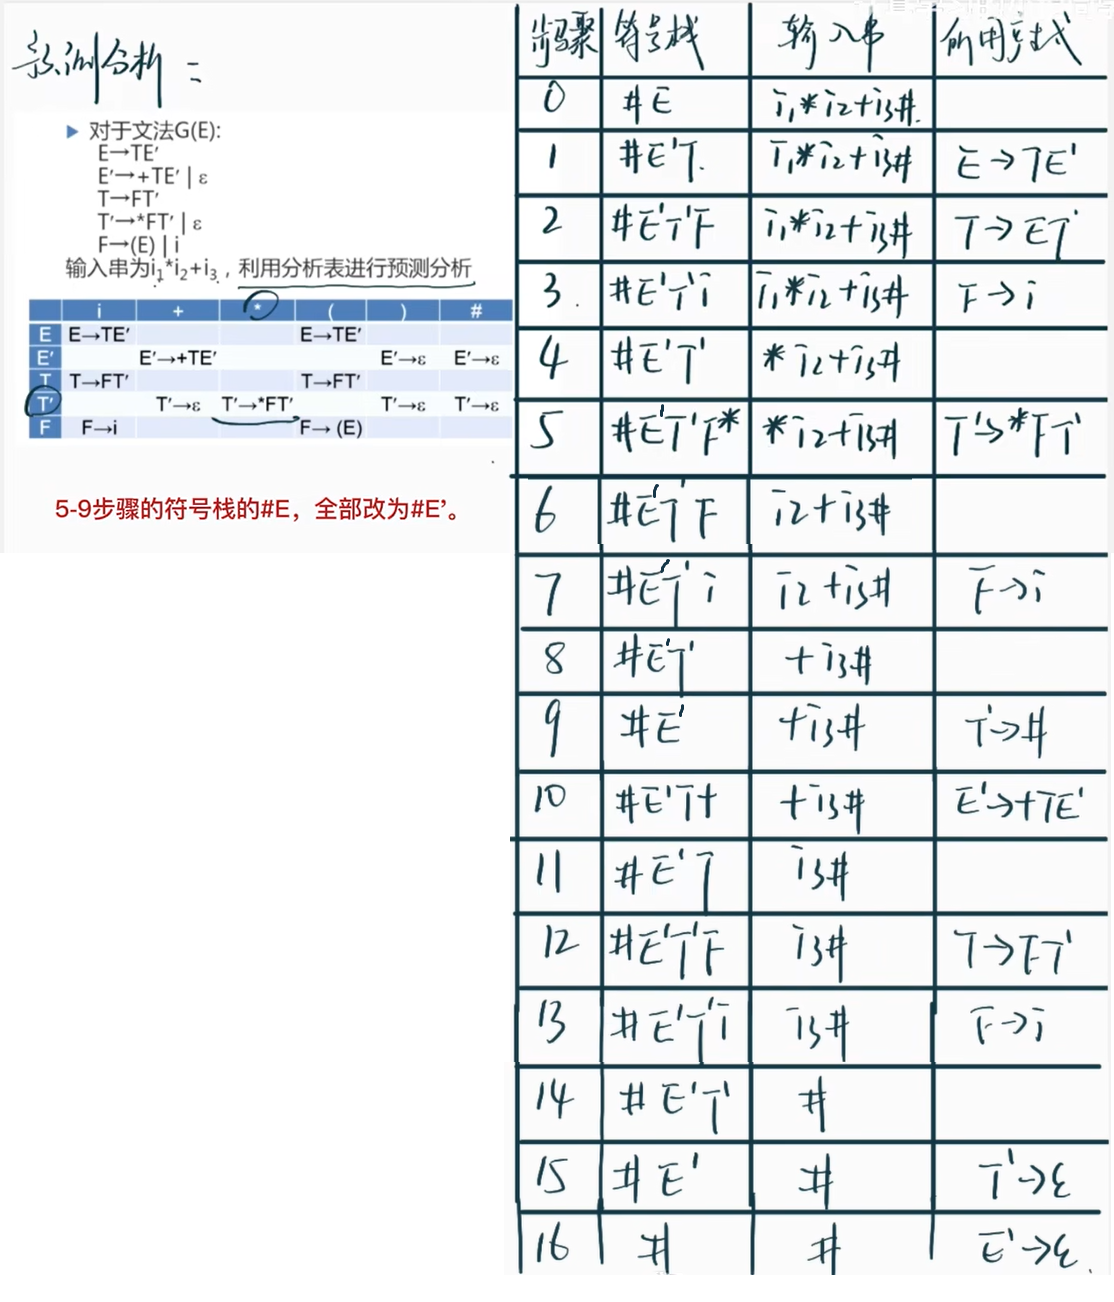 预测分析：
▶ 对于文法G(E):
E→TE′
E′→+TE′ | ε
T→FT′
T′→*FT′ | ε
F→(E) | i
输入串为i₁*i₂+i₃，利用分析表进行预测分析
i + * ( ) #
E E→TE′ E→TE′
E′ E′→+TE′ E′→ε E′→ε
T T→FT′ T→FT′
T′ T′→ε T′→*FT′ T′→ε T′→ε
F F→i F→ (E)
5-9步骤的符号栈的#E，全部改为#E’。
步骤 符号栈 输入串 所用产生式
0 #E i₁*i₂+i₃#
1 #E'T i₁*i₂+i₃# E→TE'
2 #E'T'F i₁*i₂+i₃# T→FT'
3 #E'T'i i₁*i₂+i₃# F→i
4 #E'T' *i₂+i₃#
5 #E'T'F* *i₂+i₃# T'→*FT'
6 #E'T'F i₂+i₃#
7 #E'T'i i₂+i₃# F→i
8 #E'T' +i₃#
9 #E' +i₃# T'→#
10 #E'T+ +i₃# E'→+TE'
11 #E'T i₃#
12 #E'T'F i₃# T→FT'
13 #E'T'i i₃# F→i
14 #E'T' #
15 #E' # T'→ε
16 # # E'→ε